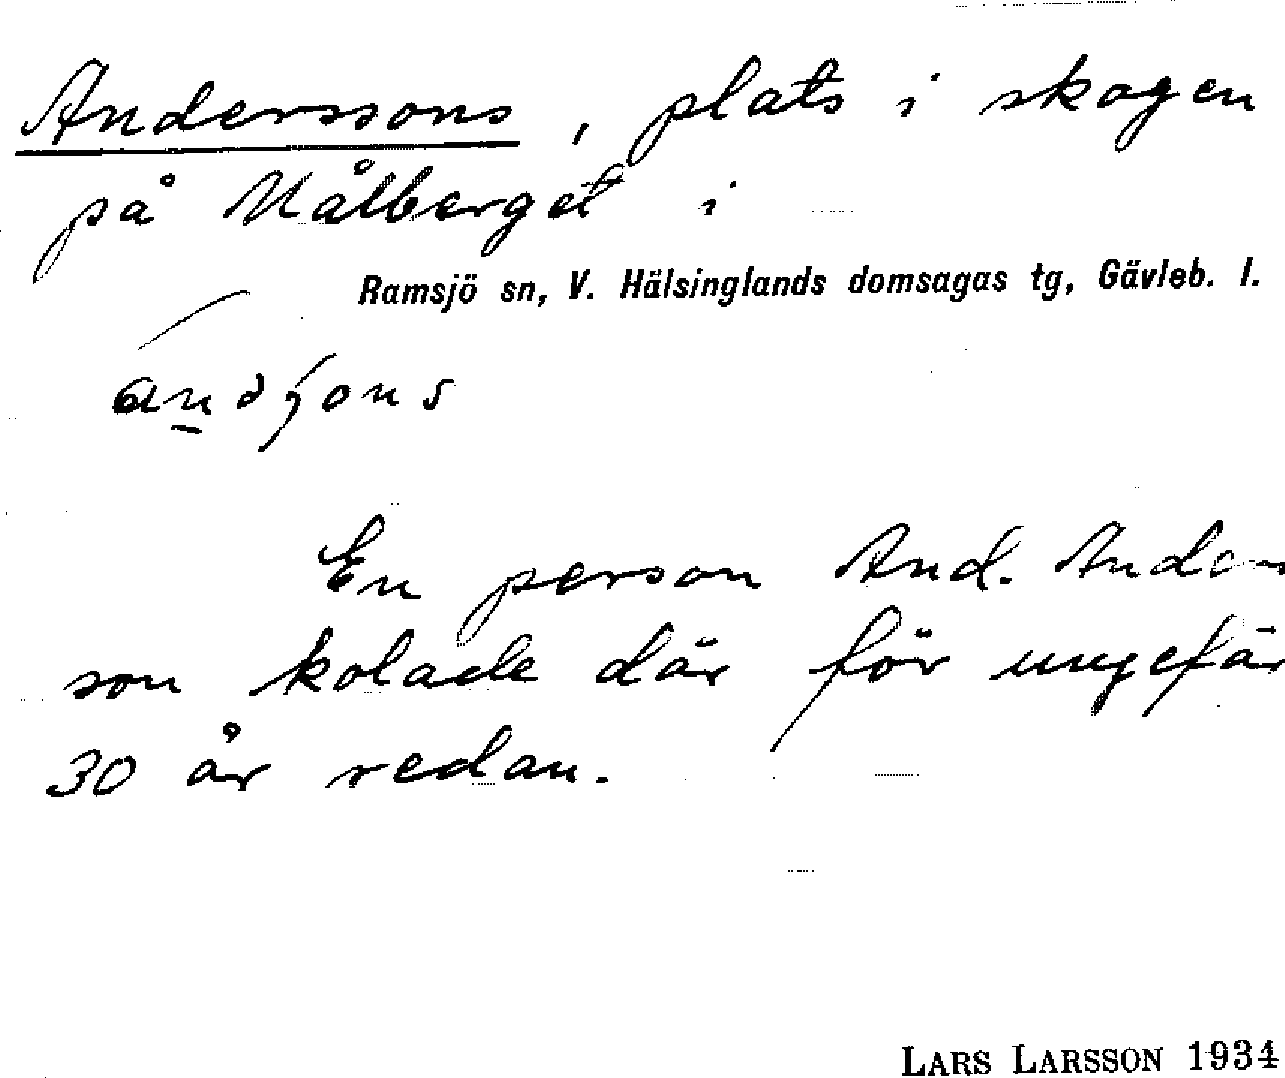 Anderssons, plats i skogen
på Målberget i
Ramsjö sn, V. Hälsinglands domsagas tg, Gävleb. l.
En person And. Anders
son kolade där för ungefär
30 år redan.
LARS LARSSON 1934